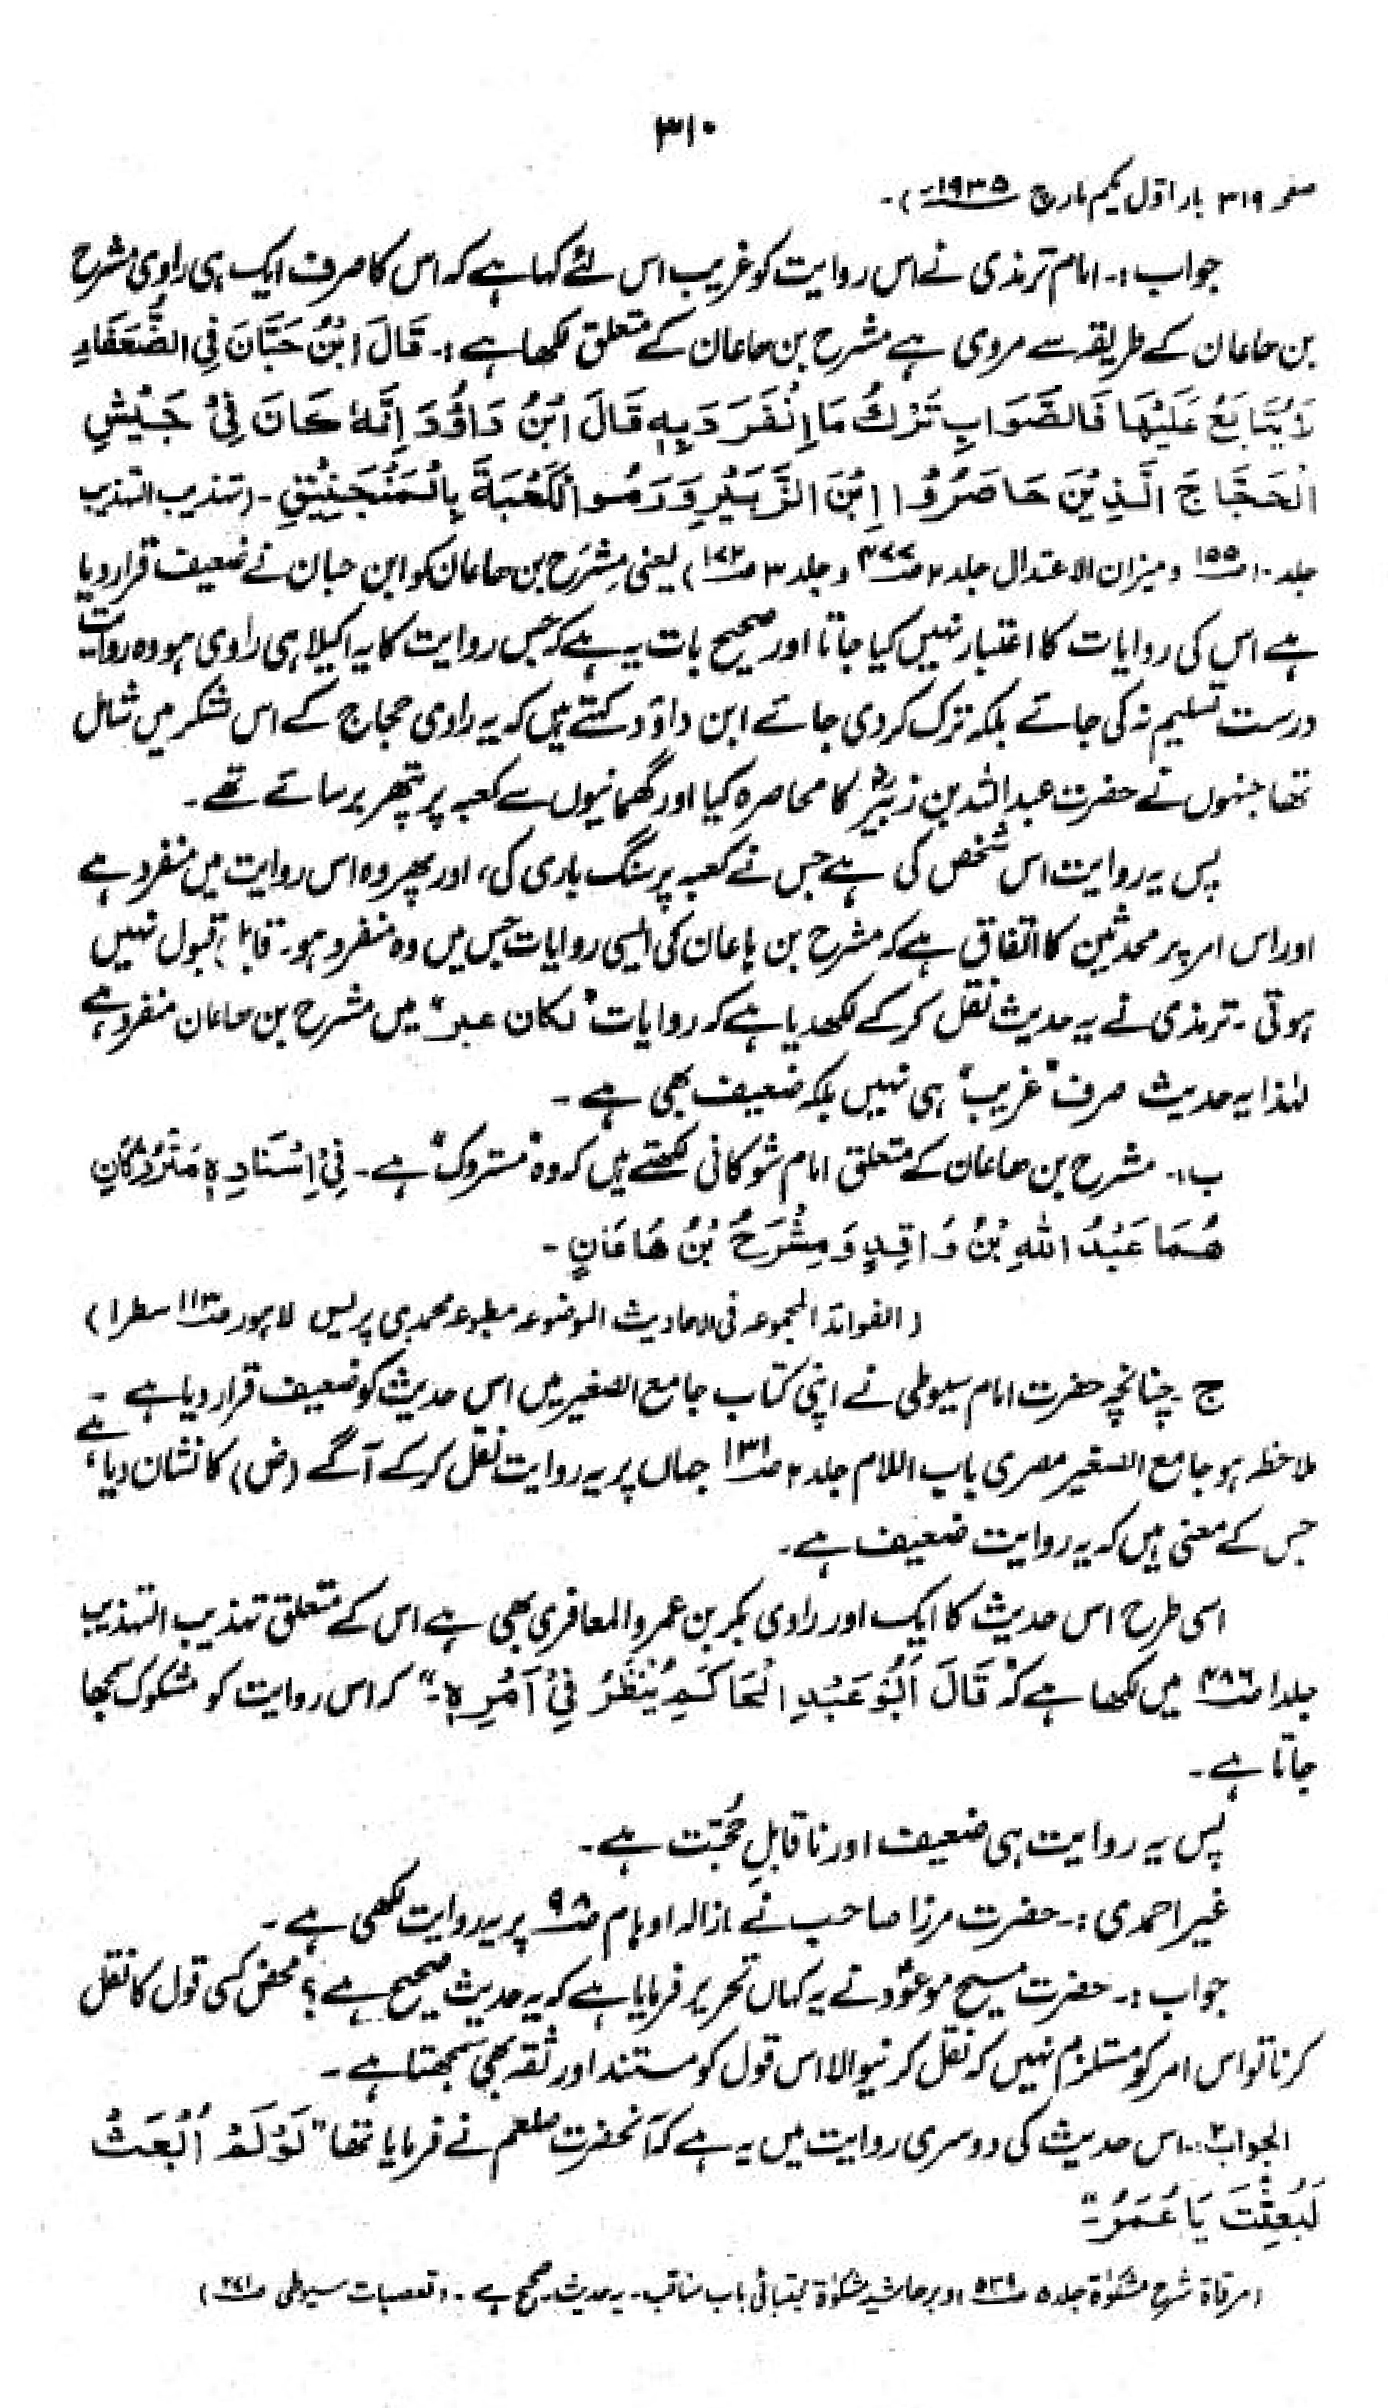 ۳۱۰
صفحہ ۳۱۹ بار اوّل یکم مارچ ۱۹۳۵ء)۔
جواب:۔ امام ترمذی نے اس روایت کو غریب اس لئے کہا ہے کہ اس کا صرف ایک ہی راوی مشرح
بن ھاعان کے طریقہ سے مروی ہے مشرح بن ھاعان کے متعلق لکھا ہے:۔ قَالَ ابْنُ حَبَّانَ فِی الضُّعَفَاءِ
لَا یُتَابَعُ عَلَیْهَا فَالصَّوَابِ تَرْكُ مَا اِنْفَرَدَ بِهٖ قَالَ ابْنُ دَاوٗدَ اِنَّهٗ كَانَ فِیْ جَیْشِ
الْحَجَّاجَ الَّذِیْنَ حَاصَرُوْا اِبْنَ الزُّبَیْرِ وَ رَمُوا الْكَعْبَةَ بِالْمَنْجَنِیْقِ۔ (تہذیب التہذیب
جلد ۱۰ صـ۱۵۵ و میزان الاعتدال جلد ۲ و جلد ۳ صـ۱۷۲) یعنی مِشرَح بن ھاعان کو ابن حبان نے ضعیف قرار دیا
ہے اس کی روایات کا اعتبار نہیں کیا جاتا اور صحیح بات یہ ہے کہ جس روایت کا یہ اکیلا ہی راوی ہو وہ روایت
درست تسلیم نہ کی جائے بلکہ ترک کر دی جائے ابن داؤد کہتے ہیں کہ یہ راوی حجاج کے اس لشکر میں شامل
تھا جنہوں نے حضرت عبداللہ بن زبیرؓ کا محاصرہ کیا اور گھمانیوں سے کعبہ پر پتھر برساتے تھے۔
پس یہ روایت اس شخص کی ہے جس نے کعبہ پر سنگ باری کی، اور پھر وہ اس روایت میں منفرد ہے
اور اس امر پر محدثین کا اتفاق ہے کہ مشرح بن ہاعان کی ایسی روایات جس میں وہ منفرد ہو۔ قابل قبول نہیں
ہوتی۔ ترمذی نے یہ حدیث نقل کر کے لکھدیا ہے کہ روایات "لکان عمر" میں مشرح بن ھاعان منفرد ہے
لہٰذا یہ حدیث صرف "غریب" ہی نہیں بلکہ ضعیف بھی ہے۔
ب:۔ مشرح بن ھاعان کے متعلق امام شوکانی لکھتے ہیں کہ وہ "متروک" ہے۔ فِیْ اِسْنَادِهٖ مَتْرُوْكَانِ
هُمَا عَبْدُ اللهِ بْنُ وَاقِدٍ وَ مِشْرَحُ بْنُ هَاعَانٍ۔
(الفوائد المجموعہ فی الاحادیث الموضوعہ مطبوعہ محمدی پریس لاہور صـ۱۱۳ سطر ۱)
ج۔ چنانچہ حضرت امام سیوطی نے اپنی کتاب جامع الصغیر میں اس حدیث کو ضعیف قرار دیا ہے۔
ملاحظہ ہو جامع الصغیر مصری باب اللام جلد ۲ صـ۱۳۱ جہاں پر یہ روایت نقل کر کے آگے (ض) کا نشان دیا ہے،
جس کے معنی ہیں کہ یہ روایت ضعیف ہے۔
اسی طرح اس حدیث کا ایک اور راوی بکر بن عمرو المعافری بھی ہے اس کے متعلق تہذیب التہذیب
جلد ۱ صـ۴۸۶ میں لکھا ہے کہ "قَالَ اَبُوْ عَبْدِ الْحَاكَمِ یُنْظَرُ فِیْ اَمْرِهٖ۔" کہ اس روایت کو مشکوک سمجھا
جاتا ہے۔
پس یہ روایت ہی ضعیف اور ناقابلِ حُجّت ہے۔
غیر احمدی:۔ حضرت مرزا صاحب نے ازالہ اوہام صـ۹۸ پر یہ روایت لکھی ہے۔
جواب:۔ حضرت مسیح موعودؑ نے یہ کہاں تحریر فرمایا ہے کہ یہ حدیث صحیح ہے؟ محض کسی قول کا نقل
کرنا تو اس امر کو مستلزم نہیں کہ نقل کرنیوالا اس قول کو مستند اور ثقہ بھی سمجھتا ہے۔
الجواب۲:۔ اس حدیث کی دوسری روایت میں یہ ہے کہ آنحضرت صلعم نے فرمایا تھا "لَوْ لَمْ اُبْعَثْ
لَبُعِثْتَ یَا عُمَرُ۔"
(مرقاة شرح مشکوٰة جلد ۵ صـ۵۳۹ و بر حاشیہ مشکوٰة مجتبائی باب مناقب۔ یہ حدیث صحیح ہے۔ (تعقبات سیوطی)